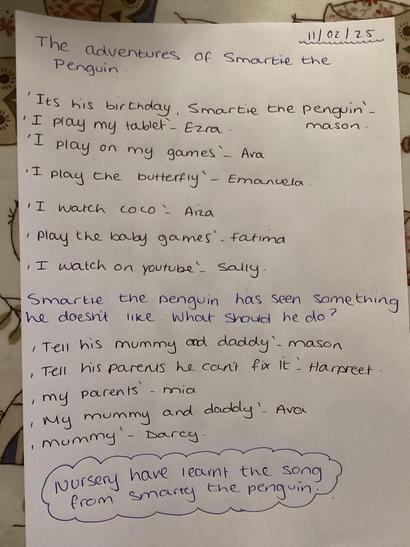 11/02/25
The adventures of Smartie the
Penguin.
'Its his birthday, Smartie the penguin' -
mason.
'I play my tablet - Ezra.
'I play on my games' - Ava
'I play the butterfly' - Emanuela.
'I watch coco' - Aiza
'play the baby games' - fatima
'I watch on youtube' - Sally.
Smartie the penguin has seen something
he doesn't like. What should he do?
'Tell his mummy and daddy' - mason
'Tell his parents he can't fix it' - Harpreet.
'my parents' - mia
'My mummy and daddy' - Ava
'mummy' - Darcy.
Nursery have learnt the song
from smarty the penguin.